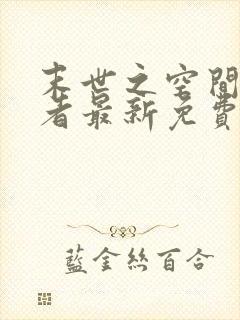 末世之空間
者最新免費
藍金絲百合